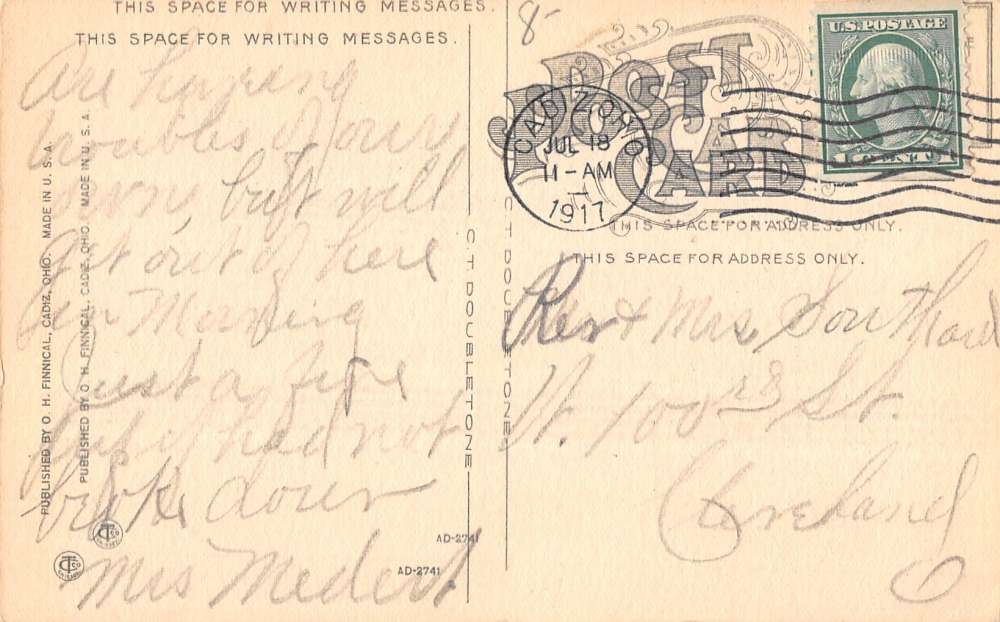 THIS SPACE FOR WRITING MESSAGES.
THIS SPACE FOR WRITING MESSAGES.
8
POST CARD
POST CARD
U.S. POSTAGE
1 CENT 1
CADIZ, OHIO
JUL 18
11-AM
1917
THIS SPACE FOR ADDRESS ONLY.
THIS SPACE FOR ADDRESS ONLY.
Are having
troubles of our
own, but will
get out of here
in Morning
Just a fine
but had not
broke down
Mrs Medert
Rev & Mrs Southard
W. 100 rd St.
Cleveland
O
PUBLISHED BY O. H. FINNICAL, CADIZ, OHIO. MADE IN U. S. A.
PUBLISHED BY O. H. FINNICAL, CADIZ, OHIO. MADE IN U. S. A.
C. T. DOUBLETONE
C. T. DOUBLETONE
AD-2741
AD-2741